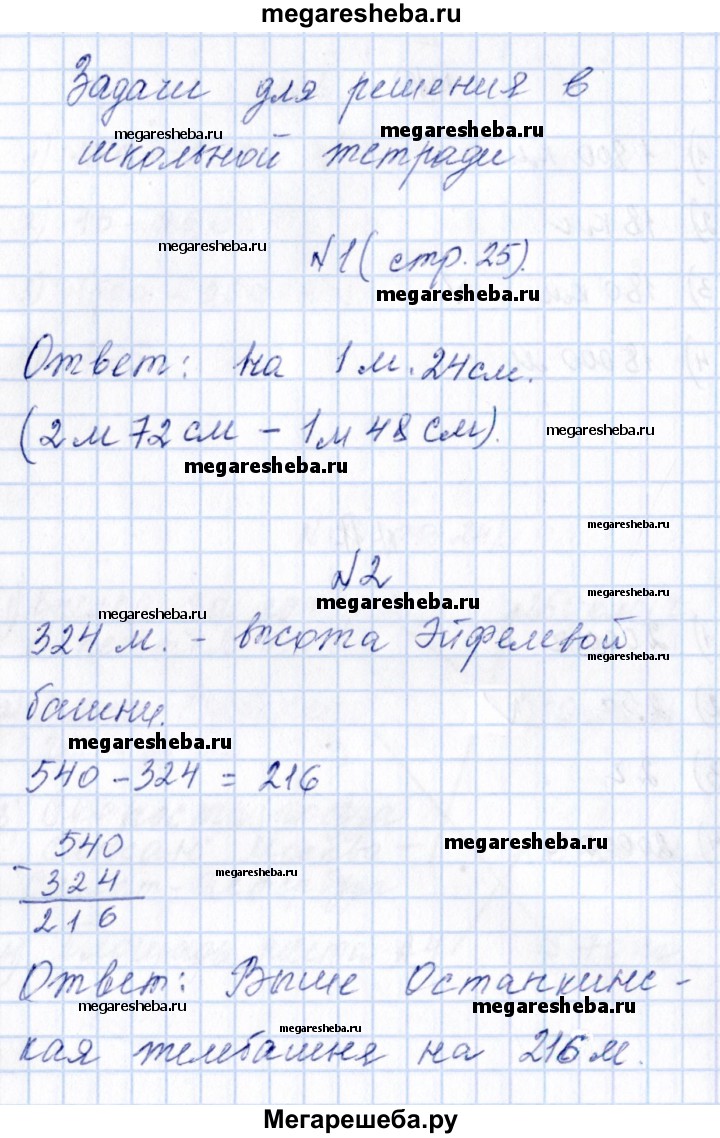 megaresheba.ru
Задачи для решения в
megaresheba.ru megaresheba.ru
школьной тетради
megaresheba.ru №1 (стр. 25).
megaresheba.ru
Ответ: на 1 м. 24 см.
(2 м 72 см – 1 м 48 см). megaresheba.ru
megaresheba.ru
megaresheba.ru
№2
megaresheba.ru
megaresheba.ru
megaresheba.ru
324 м. - высота Эйфелевой
megaresheba.ru
башни.
megaresheba.ru
540 – 324 = 216
540
megaresheba.ru
- 324
megaresheba.ru
216
Ответ: Выше Останкинс-
megaresheba.ru megaresheba.ru
megaresheba.ru
кая телебашня на 216 м.
Мегарешеба.ру